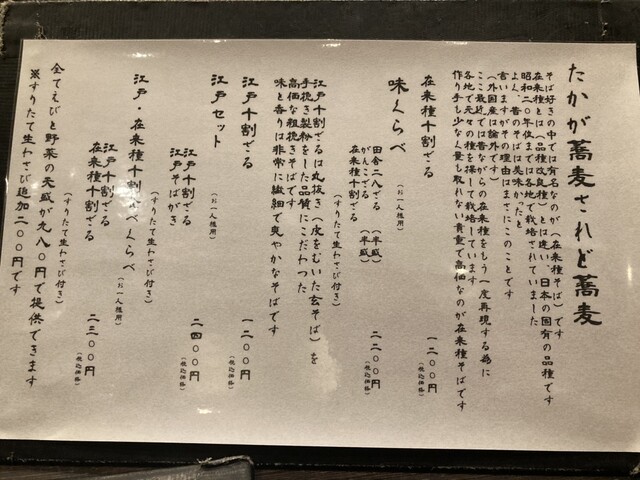 たかが蕎麦されど蕎麦
そば好きの中では有名なのが（在来種そば）です
在来種とは（品種改良種）とは違い、日本の固有の品種です
昭和二〇年位までは各地で栽培されていました
よく、昔のそばは美味かったと
言いますがその理由はまさにこのことです
（外国産は論外です）
ここ最近では昔ながらの在来種をもう一度再現する為に
各地で元々の種を探して栽培しています
作り手も少なく量も取れない貴重で高価なのが在来種そばです
在来種十割ざる 一二〇〇円
（税込価格）
味くらべ（お一人様用）
田舎二八ざる （半盛）
がんこざる （半盛）
在来種十割ざる 二二〇〇円
（すりたて生わさび付き） （税込価格）
江戸十割ざるは丸抜き（皮をむいた玄そば）を
手挽き製粉をした品質にこだわった
高価な粗挽きそばです
味と香りは非常に繊細で爽やかなそばです
江戸十割ざる 一二〇〇円
（税込価格）
江戸セット（お一人様用）
江戸十割ざる
江戸そばがき 二四〇〇円
（すりたて生わさび付き） （税込価格）
江戸・在来種十割食べくらべ（お一人様用）
江戸十割ざる
在来種十割ざる 二三〇〇円
（すりたて生わさび付き） （税込価格）
全てえびと野菜の天盛が九八〇円で提供できます
※すりたて生わさび追加二〇〇円です